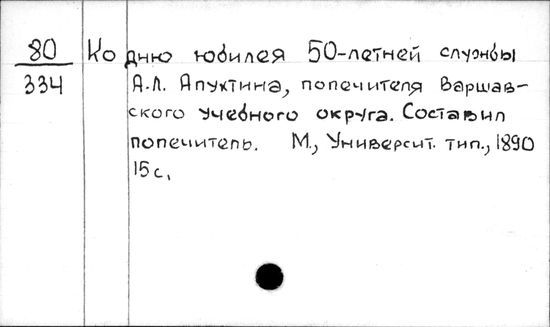 80 Ко дню юбилея 50-летней службы
334 А.Л. Апухтина, попечителя Варшав-
ского учебного округа. Составил
попечитель. М., Университ. тип., 1890
15с.